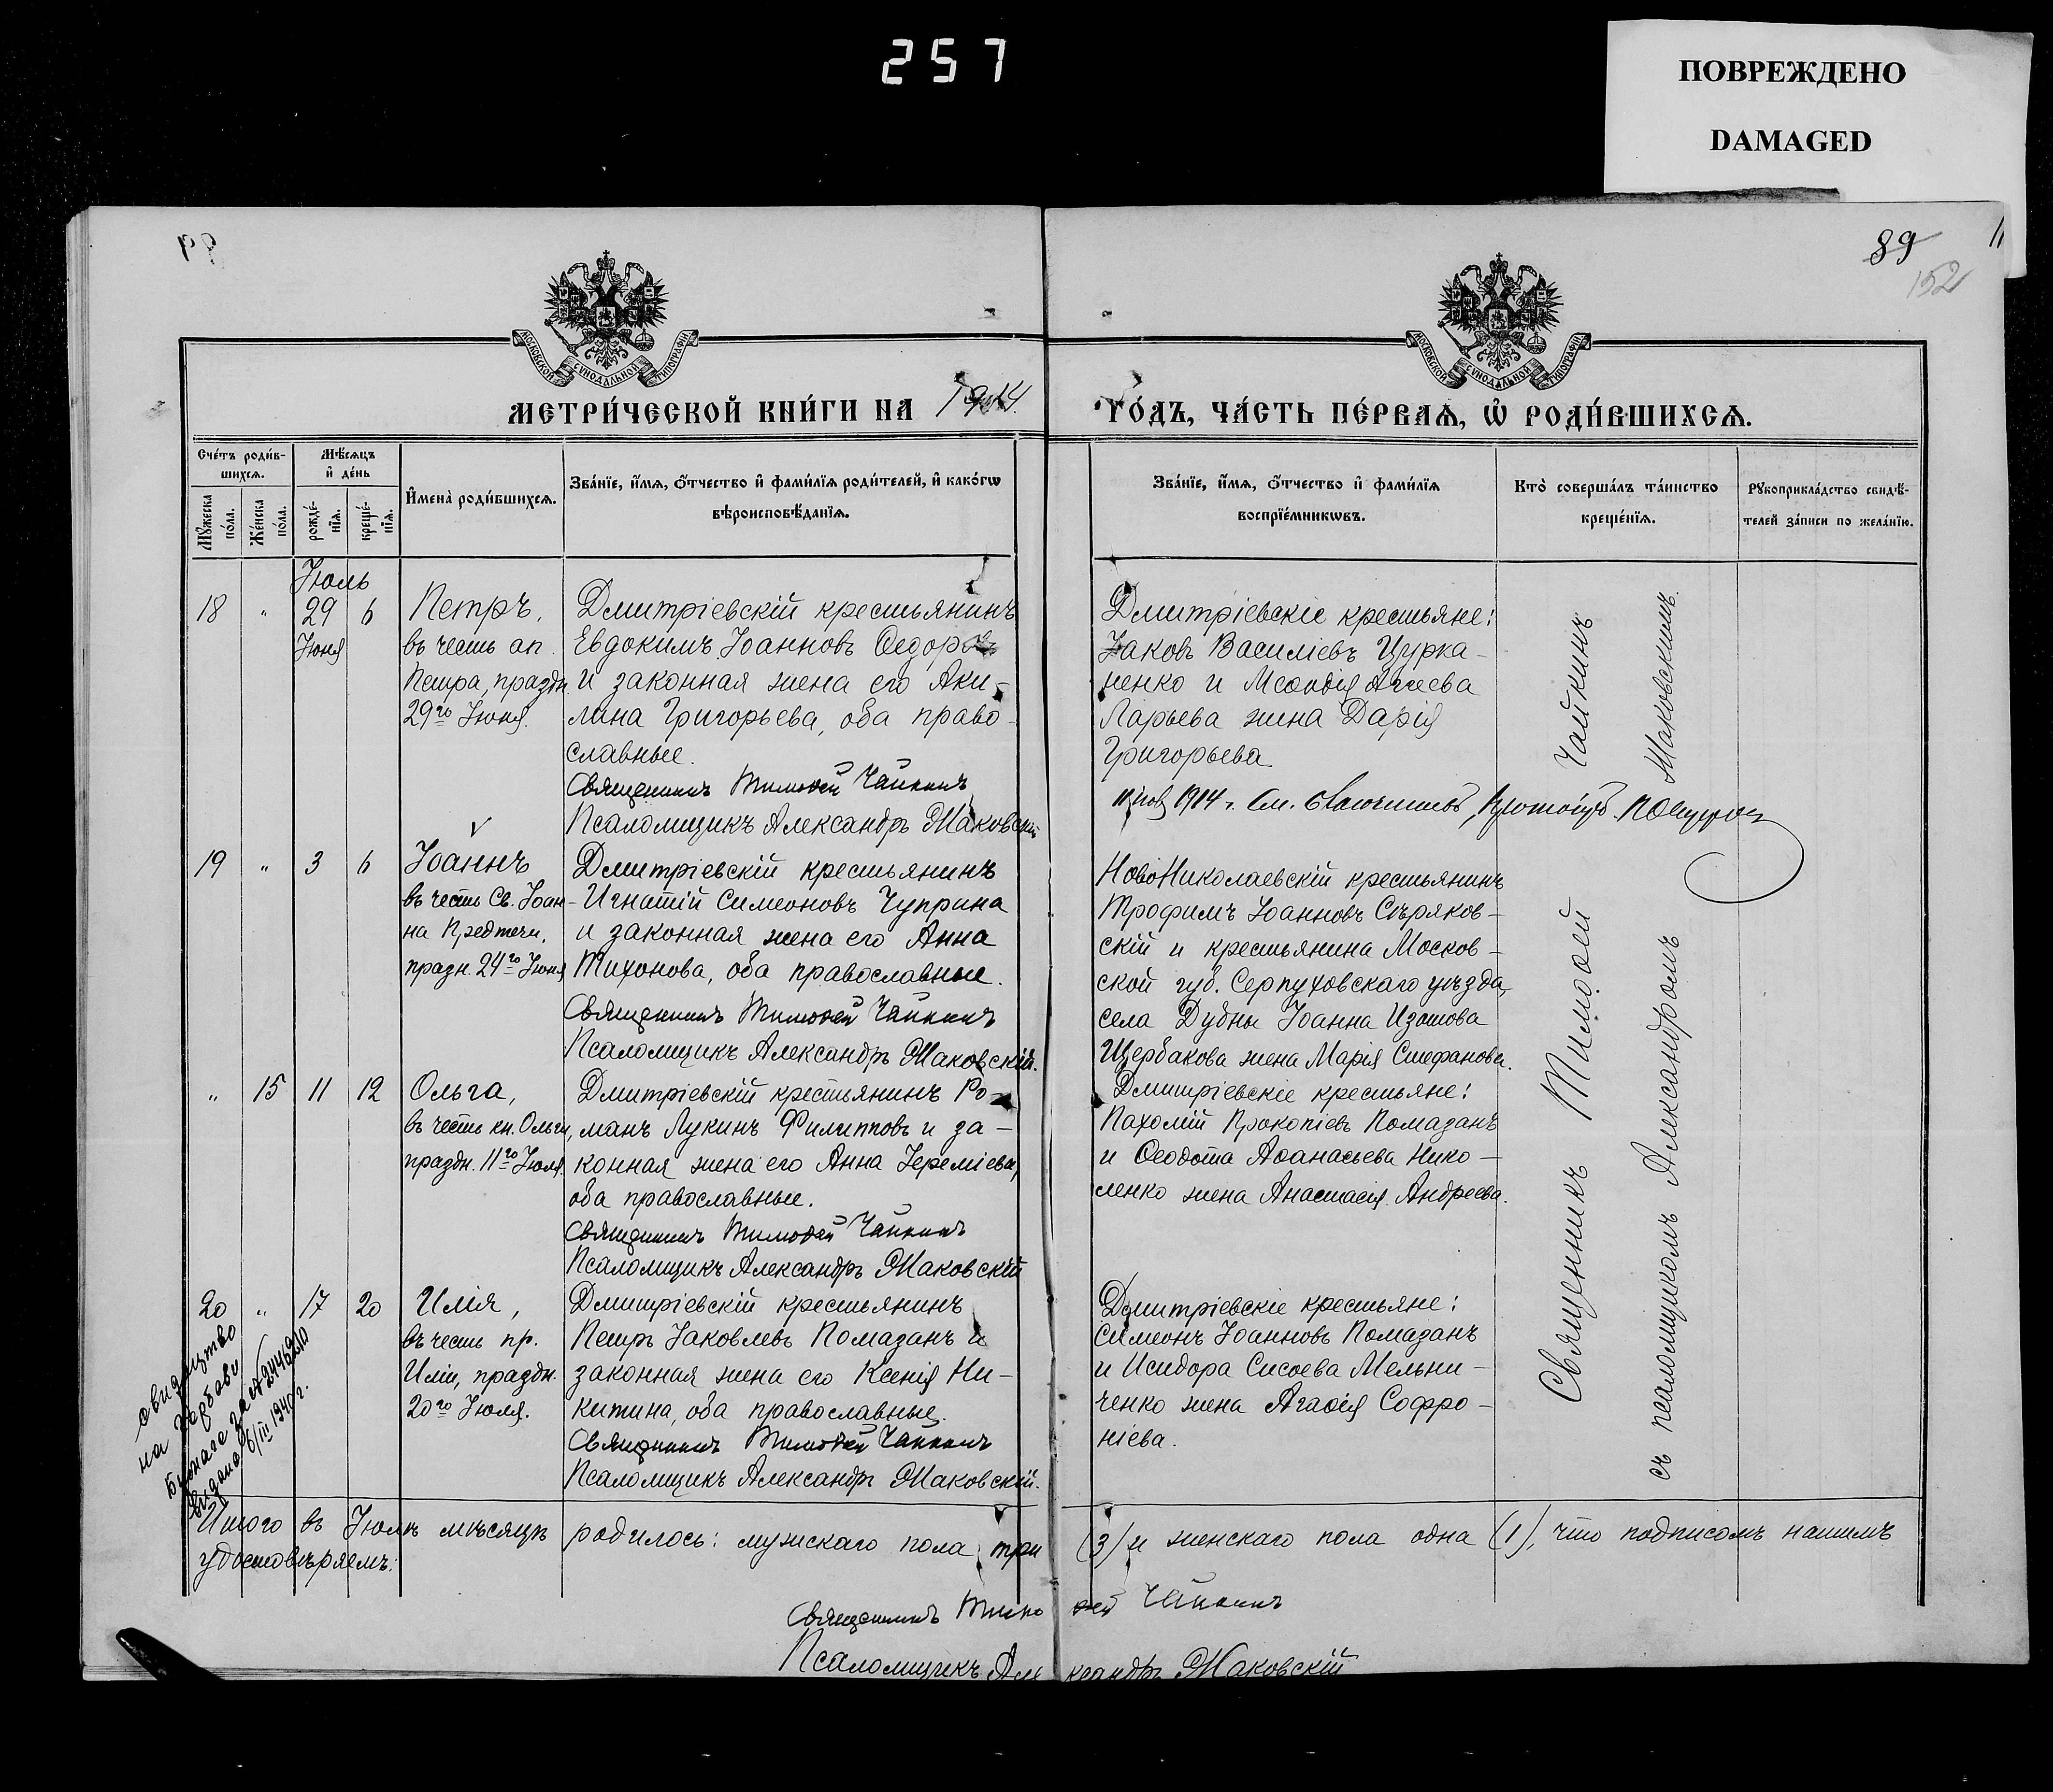 257
ПОВРЕЖДЕНО
DAMAGED
89
152
МОСКОВСКОЙ СУНОДАЛЬНОЙ ТИПОГРАФІИ
МОСКОВСКОЙ СУНОДАЛЬНОЙ ТИПОГРАФІИ
МЕТРИ́ЧЕСКОЙ КНИ́ГИ НА 1914. ГО́ДЪ, ЧА́СТЬ ПЕ́РВАѦ, Ѡ҆ РОДИ́ВШИХСѦ.
Сче́тъ роди́в-
шихсѧ.
Мꙋжеска
по́ла.
Же́нска
по́ла.
Мѣ́сѧцъ
и҆ де́нь
рожде́-
нїѧ.
креще́-
нїѧ.
И҆мена̀ роди́вшихсѧ.
Зва́нїе, и҆́мѧ, ѻ҆́тчество и҆ фами́лїѧ роди́телей, и҆ како́гѡ
вѣроисповѣ́данїѧ.
Зва́нїе, и҆́мѧ, ѻ҆́тчество и҆ фами́лїѧ
воспрїе́мникѡвъ.
Кто̀ соверша́лъ та́инство
креще́нїѧ.
Рꙋкоприкла́дство свидѣ́-
телей за́писи по жела́нїю.
Іюль
18 " 29 6
Іюня
Петръ,
въ честь ап.
Петра, праздн.
29го Іюня.
Дмитріевскій крестьянинъ
Евдокимъ Іоанновъ
и законная жена его Аки-
лина Григорьева, оба право-
славные.
Священникъ Тимоѳей Чайкинъ
Псаломщикъ Александръ Маковскій
Дмитріевскіе крестьяне:
Іаковъ Василіевъ Цурка-
ненко и
Ларьева жена Дарія
Григорьева
1914 г.
19 " 3 6
Іоаннъ
въ честь Св. Іоан-
на Предтечи,
праздн. 24го Іюня
Дмитріевскій крестьянинъ
Игнатій Симеоновъ Чуприна
и законная жена его Анна
Тихонова, оба православные.
Священникъ Тимоѳей Чайкинъ
Псаломщикъ Александръ Маковскій.
НовоНиколаевскій крестьянинъ
Трофимъ Іоанновъ Сѣряков-
скій и крестьянина Москов-
ской губ. Серпуховскаго уѣзда,
села Дубны Іоанна Изотова
Щербакова жена Марія Стефанова.
" 15 11 12
Ольга,
въ честь кн. Ольги,
праздн. 11го Іюля.
Дмитріевскій крестьянинъ Ро-
манъ Лукинъ Филипповъ и за-
конная жена его Анна Іереміева,
оба православные.
Священникъ Тимоѳей Чайкинъ
Псаломщикъ Александръ Маковскій
Дмитріевскіе крестьяне:
Пахомій Прокопіевъ Помазанъ
и Ѳеодота Аѳанасьева Нико-
ленко жена Анастасія Андреева.
20 " 17 20
Илія,
въ честь пр.
Иліи, праздн.
20го Іюля.
Дмитріевскій крестьянинъ
Петръ Іаковлевъ Помазанъ и
законная жена его Ксенія Ни-
китина, оба православные.
Священникъ Тимоѳей Чайкинъ
Псаломщикъ Александръ Маковскій.
Дмитріевскіе крестьяне:
Симеонъ Іоанновъ Помазанъ
и Исидора Сисоева Мельни-
ченко жена Агаѳія Софро-
ніева.
Священникъ Тимоѳей Чайкинъ
съ псаломщикомъ Александромъ Маковскимъ.
6/III 1940 г.
Итого въ Іюлѣ мѣсяцѣ родилось: мужскаго пола три (3) и женскаго пола одна (1), что подписомъ нашимъ
удостовѣряемъ:
Священникъ Тимоѳей Чайкинъ
Псаломщикъ Александръ Маковскій